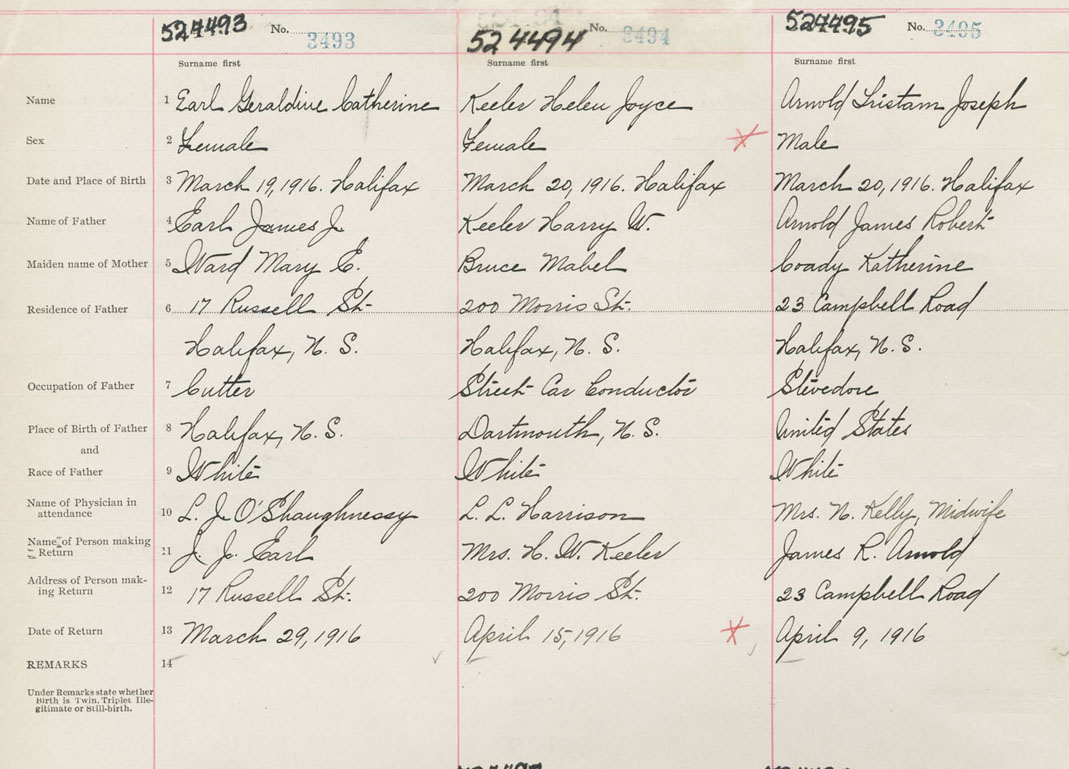 527493 No. 3493 524494 No. 3494 527495 No. 3495
Surname first Surname first Surname first
Name 1 Earl Geraldine Catherine Keeler Helen Joyce Arnold Tristam Joseph
Sex 2 Female Female Male
Date and Place of Birth 3 March 19, 1916. Halifax March 20, 1916. Halifax March 20, 1916. Halifax
Name of Father 4 Earl James J. Keeler Harry W. Arnold James Robert
Maiden name of Mother 5 Ward Mary E. Bruce Mabel Coady Katherine
Residence of Father 6 17 Russell St. 200 Morris St. 23 Campbell Road
Halifax, N. S. Halifax, N. S. Halifax, N. S.
Occupation of Father 7 Cutter Street Car Conductor Stevedore
Place of Birth of Father 8 Halifax, N. S. Dartmouth, N. S. United States
and
Race of Father 9 White White White
Name of Physician in
attendance 10 L. J. O'Shaughnessy L. L. Harrison Mrs. N. Kelly, Midwife
Name of Person making
Return 11 J. J. Earl Mrs. H. W. Keeler James R. Arnold
Address of Person mak-
ing Return 12 17 Russell St. 200 Morris St. 23 Campbell Road
Date of Return 13 March 29, 1916 April 15, 1916 April 9, 1916
REMARKS 14
Under Remarks state whether
Birth is Twin, Triplet Ille-
gitimate or Still-birth.